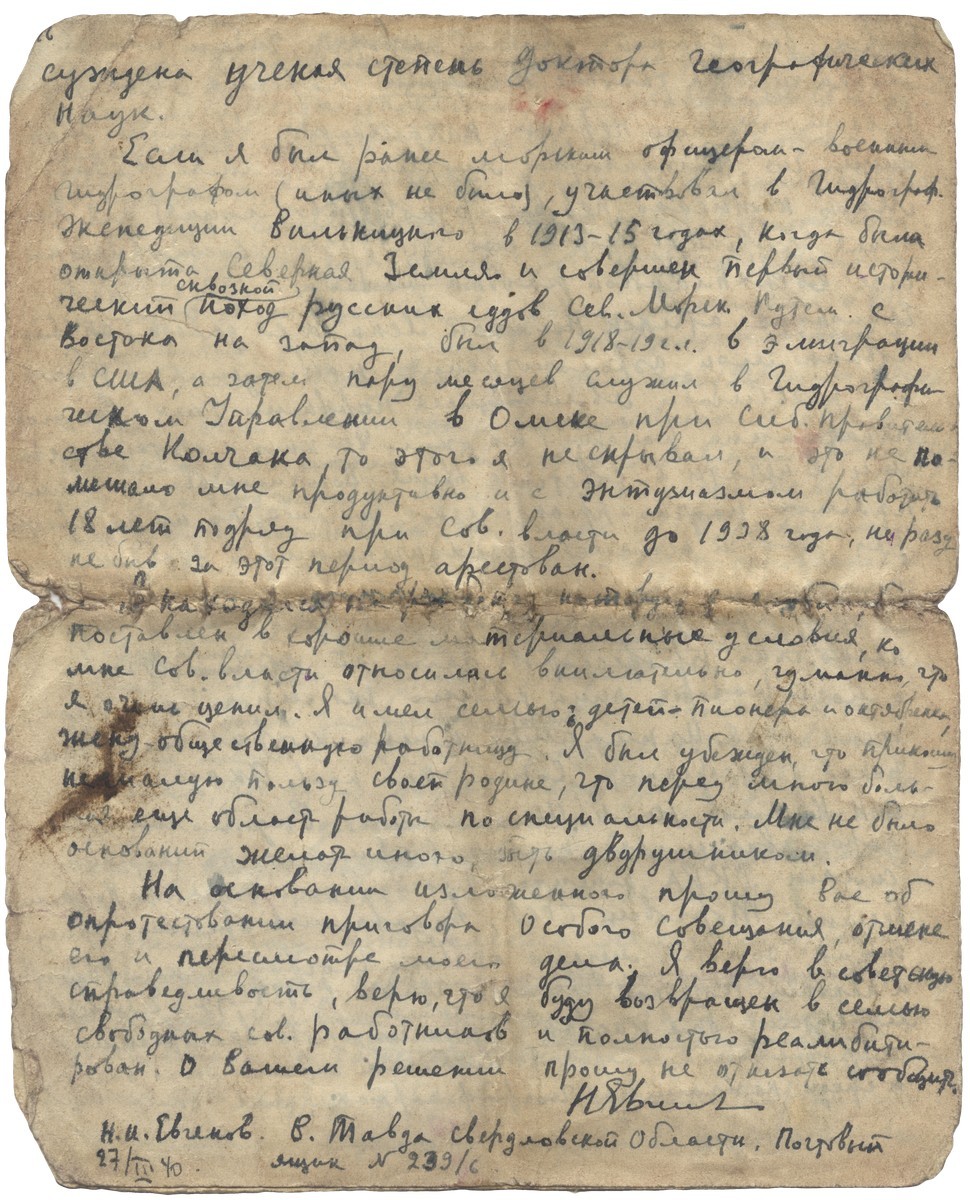 суждена ученая степень доктора географических
наук.
Если я был ранее морским офицером - военным
гидрографом (иных не было), участвовал в Гидрограф.
Экспедиции Вилькицкого в 1913-15 годах, когда была
открыта Северная Земля и совершен первый истори-
сквозной
ческий поход русских судов Сев. Морск. Путем с
Востока на запад, был в 1918-19 г.г. в эмиграции
в США, а затем пару месяцев служил в Гидрографи-
ческом Управлении в Омске при Сиб. правитель-
стве Колчака, то этого я не скрывал, и это не по-
мешало мне продуктивно и с энтузиазмом работать
18 лет подряд при Сов. власти до 1938 года, ни разу
не быв за этот период арестован.
находился
поставлен в хорошие материальные условия, ко
мне Сов. власти относились внимательно, гуманно, что
я очень ценил. Я имел семью: 2 детей - пионера и октябренка,
жену - общественную работницу. Я был убежден, что приношу
немалую пользу своей родине, что передо мною боль-
еще область работы по специальности. Мне не было
оснований желать иного, быть двурушником.
На основании изложенного прошу Вас об
опротестовании приговора Особого Совещания, отмене
его и пересмотре моего дела. Я верю в советскую
справедливость, верю, что я буду возвращен в семью
свободных сов. работников и полностью реабилити-
рован. О Вашем решении прошу не отказать сообщить.
НЕвгенов
Н.И. Евгенов. г. Тавда Свердловской Области. Почтовый
27/III 40. ящик № 239/с